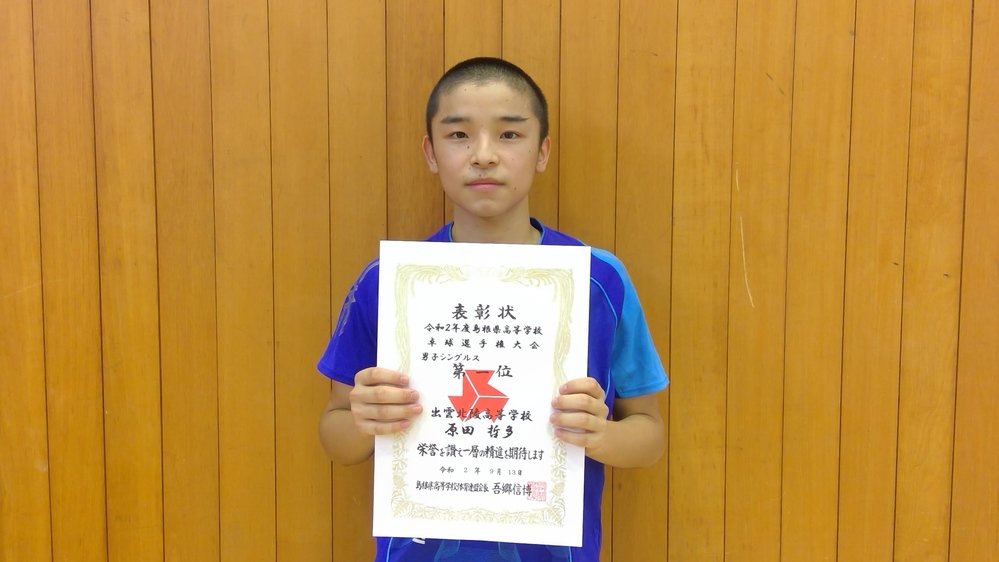 表彰状
令和2年度島根県高等学校
卓球選手権大会
男子シングルス
第一位
出雲北陵高等学校
原田 哲多
栄誉を讃え一層の精進を期待します
令和 2 年 9 月 13 日
島根県高等学校体育連盟会長 吾郷信博